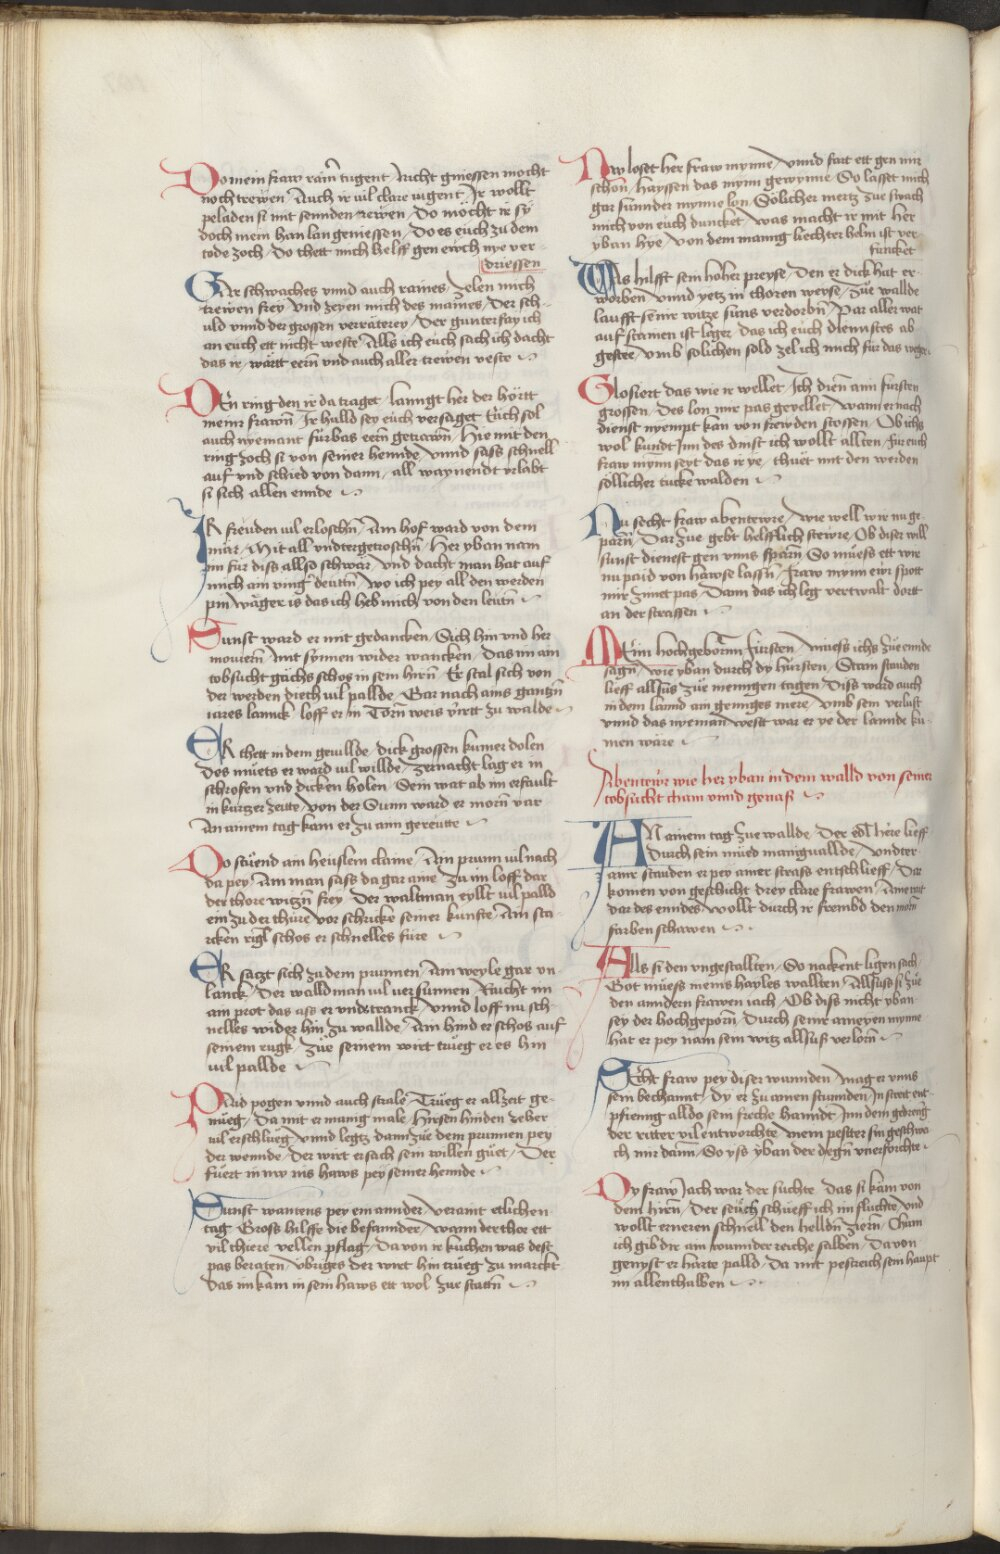 Do mein fraw rain tugent Nicht gniessen mocht
noch trewen Auch ir vil clare iugent Ir wollt
peladen si mit sennden rewen Do mocht ir sy
doch mein han lan geniessen Do es euch zu dem
tode zoch Do thett mich helff gen euch nye ver
driessen
Gar schwaches vnnd auch raines Zelen mich
trewen frey Vnd zeyen mich des maines Der sch
uld vnnd der grossen verräterey Der gunterfay ich
an euch ett nicht weste Alls ich euch sach ich dacht
das ir wärtt eern vnd auch aller trewen veste
Den ring den ir da traget lanngt her der hörtt
meinr frawn Ir hulld sey euch versaget Euch sol
auch nyemant fürbas eern getrawn Hie mit den
ring zoch si von seiner hennde vnnd sass schnell
auf vnd schied von dann all waynendt vrlabt
si sich allen ennde
Ir freuden vil erloschn Am hof ward von dem
mär Mit all vndtergetroschn Her yban nam
im für diss allso schwär vnd dacht man hat auf
mich ain ring deuttn wo ich pey all den werden
pin wäger is das ich heb mich von den leutn
Sunst ward er mit gedancken Sich hin vnd her
mouiern Mit synnen wider wancken Das im ain
tobsucht gächs schos in sein hirn Er stal sich von
der werden diech vil pallde Gar nach ains ganzn
iares lannck loff er in Torn weis yrett zu walde
Er thett in dem gewillde dick grossen kumer dolen
Des müets er ward vil willde zernacht lag er in
schrofen vnd dicken holen Sein wat ab im erfault
in kurtzer zeitte von der Sunn ward er morn var
An ainem tag kam er zu ainn gereutte
Do stuend ain heuslein claine Am prunn vil nach
da pey Ain man sass da gar aine zu im loff dar
der thore witzn frey Der waltman eyllt vil palld
ein zu der thüre vor schricke seiner kunfte Ain sta
rcken rigl schos er schnelles füre
Er satzt sich zu dem prunnen Ain weyle gar vn
lanck Der walldman vil versunnen Raicht im
ain prot das ass er vnd tranck vnnd loff im sch
nelles wider hin zu wallde Ain hind er schos auf
seinem rugk Züe seinem wirt trueg er es hin
vil pallde
Pald pogen vnnd auch strale Trueg er all zeit ge
nueg Da mit er manig male Hirsen hinden Zeber
vil erschlueg vnnd legtz dann züe dem prunnen pey
der wennde Der wirt ersach sein willen güet Der
füert in nw ins haws pey seiner hennde
Sunst wantens pey em annder veramt etlichen
tag Gross hilffe die besannder wann der thor ett
vil thiere vellen pflag Da von ir kuchen was dest
pas beraten übriges der wirt hin trueg zu marckt
das im kam in sein haws ett wol zue stattn
Nw loset her fraw mynne vnnd fart ett gen mir
schon Hayssen das mynn gewynne So lasset mich
gar sunnder mynne lon Sölicher mertz zue swach
mich von euch duncket was macht ir mit her
yban hye von dem manig liechter helm ist ver
funcket
Was hilfft sein hoher preyse Den er dick hat er
worben vnnd yetz in thoren weyse Zue wallde
laufft seinr witze süns verdorbn Par aller wat
auf stainen ist läger das ich euch diennstes ab
gestee vmb solichen sold zel ich mich für das weger
Glosiert das wie ir wellet Ich dien ainn fürsten
grossen Des lon mir pas gevellet wann er nach
dienst nyempt kan von frewden stossen Ob ichs
wol kundt Inn des dinst ich wollt allten für euch
fraw mynn seyt das ir ye thuet mit den werden
söllicher tucke walden
Nu secht fraw abentewre wie well wir nu ge
parn Dar zue gebt helfflich stewre Ob diser will
sunst dienest gen vnns sparn So muess ett wir
nu paid von hawse lassn fraw mynn ewr spott
mir zimet pas Dann das ich leg vertwalt dortt
an der strassen
Mein hochgebornn fürsten muess ichs züe ennde
sagn wie yban durch dy hürsten Stain stauden
lieff allsus züe menngen tagen Diss ward auch
in dem lannd ain genniges mere vmb sein verlust
vnnd das nyeman westt war er ye der lannde ku
men wäre
Abenteur wie her yban in dem walld von seiner
tobsucht cham vnnd genaß
An ainem tag zue wallde Der edl here lieff
Durch sein müed maniguallde vndter
ainr stauden er pey ainer strass entschlieff Dar
komen von geschicht drey clare frawen Aine mit
var des enndes wollt durch ir frembd den morn
farben schawen
Alls si den vngestallten So nackent ligen sach
Got muess meins hayles wallten Allsuss si züe
den anndern frawen iach Ob diss nicht yban
sey der hochgeporn durch seinr ameyen mynne
hat er pey nam sein witz allsuß verlorn
Secht fraw pey diser wunnden mag er vnns
sein bechannt dy er zu ainen stunnden In streit ent
pfienng alldo sein freche hanndt Inn dem gedreng
der ritter vil entworchte mein pester sin geschwo
ch mir dann So ys yban der degn vnerforchte
Dy fraw Iach war der suchte das si kam von
dem hirn Der seuch schueff ich im fluchte vnd
wollt erneren schnell den helldn ziern Chain
ich gib dir ain wunnder reiche salben Da von
genyst er harte palld Da mit pestreich sein haupt
im allenthalben